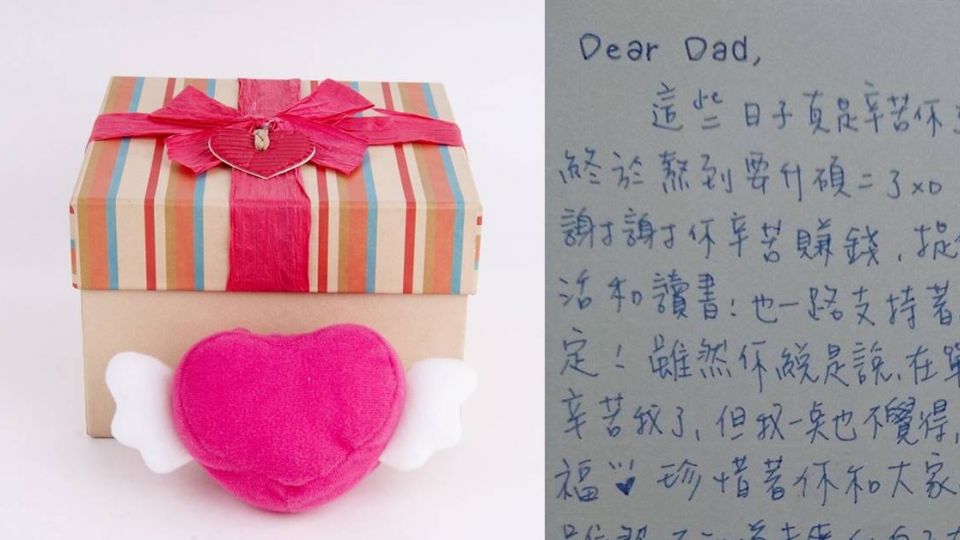 Dear Dad,
這些日子真是辛苦你
終於熬到要升碩二了xD
謝謝你辛苦賺錢,提
活和讀書!也一路支持著
定!雖然你總是說,在單
辛苦我了,但我一點也不覺得,
福 珍惜著你和大家